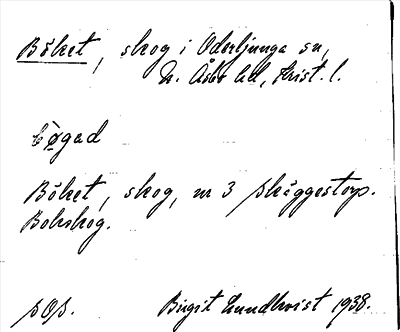 Böket, skog i Oderljunga sn,
N. Åsbo hd, Krist. l.
bøgad
Böket, skog, nr 3 Skäggestorp.
Bokskog.
sOs. Birgit Lundkvist 1938.